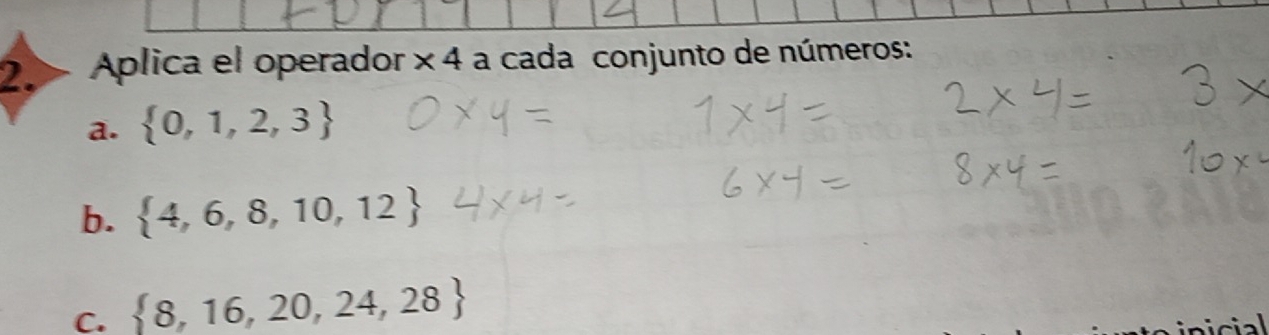 2. Aplica el operador × 4 a cada conjunto de números:
a. {0, 1, 2, 3} 0 × 4 = 1 × 4 = 2 × 4 = 3 ×
b. {4, 6, 8, 10, 12} 4 × 4 = 6 × 4 = 8 × 4 = 10 ×
c. {8, 16, 20, 24, 28}
inicial